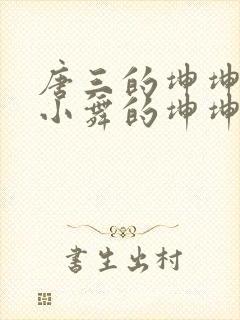 唐三的坤坤
小舞的坤坤
书生出村